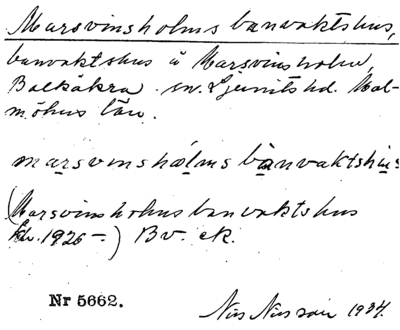 Marsvinsholms banvaktshus,
banvaktshus å Marsvinsholm,
Balkåkra sn. Ljunits hd. Mal-
möhus län.
marsvinshålms bànvaktshùs
(Marsvinsholms banvaktshus
1926 –) Bv. ek.
Nr 5662.
Nils Nilsson 1934.